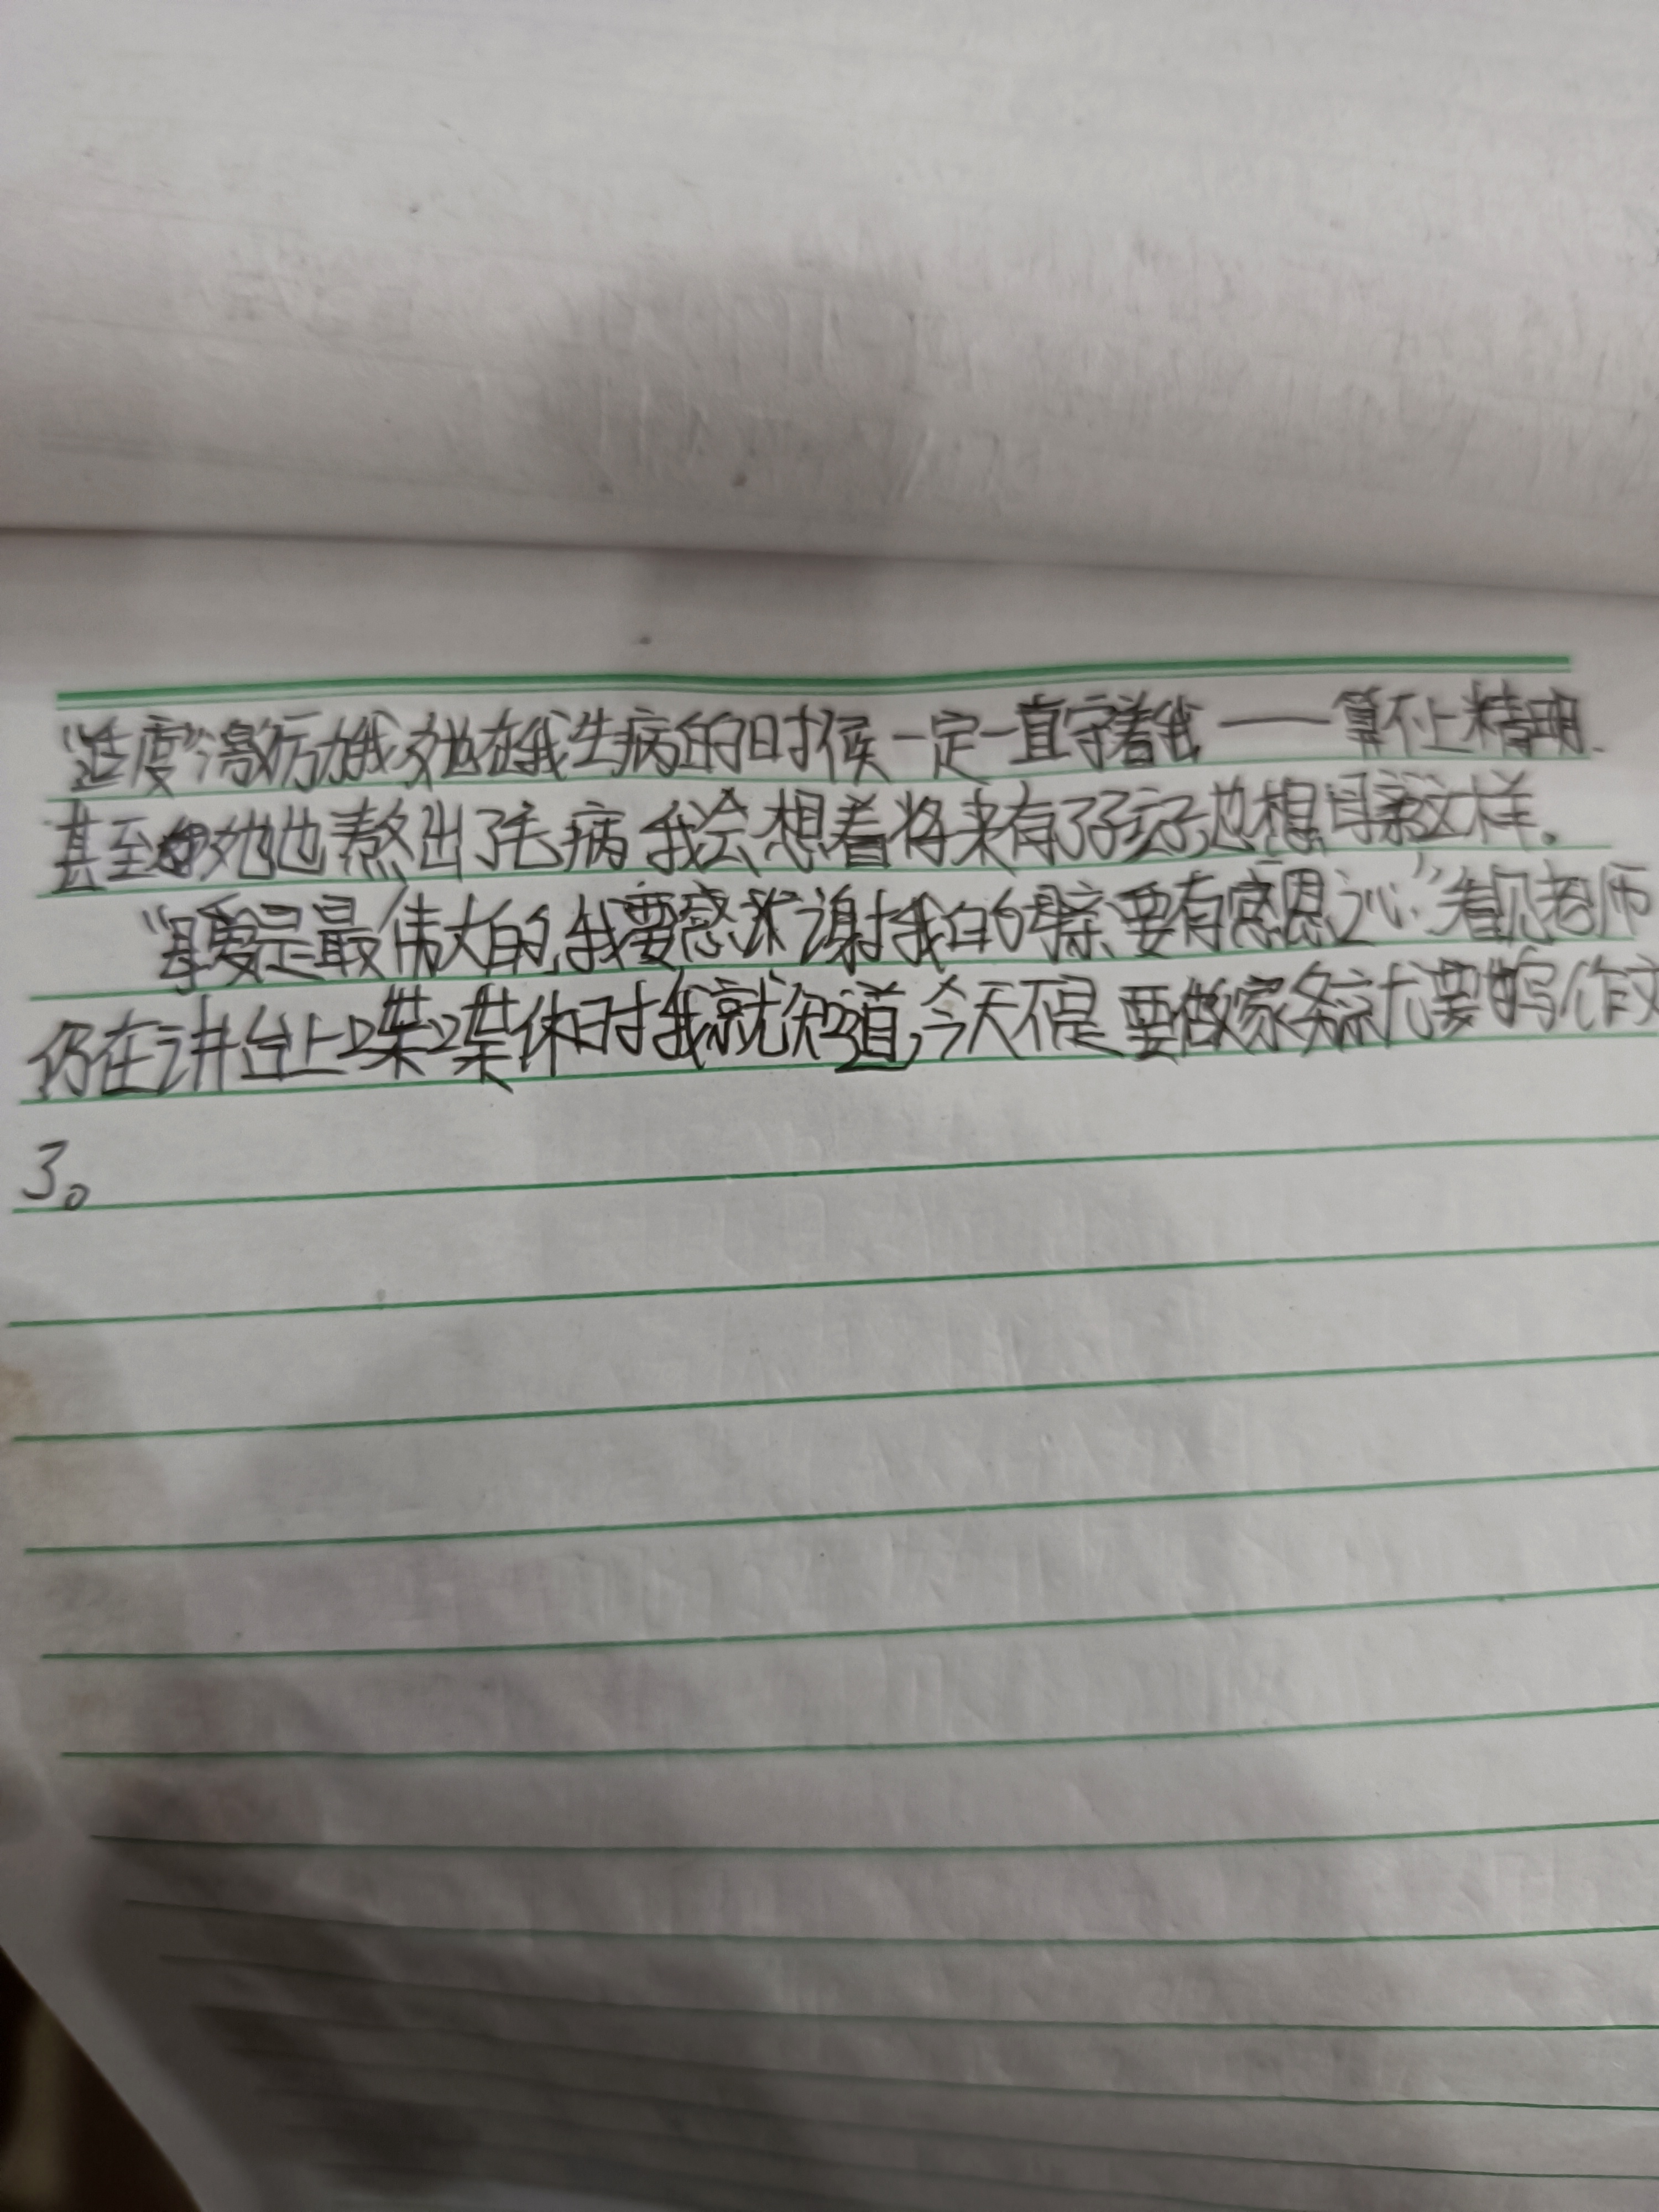 “适度”激励我,她在我生病的时候一定一直守着我——算不上精明、
甚至她也熬出了毛病我会想着将来有了孩子也想母亲这样。
“母爱是最伟大的,我要感谢我的母亲、要有感恩之心”看见老师
仍在讲台上喋喋休时我就知道,今天不是要做家务就要写作文
了。